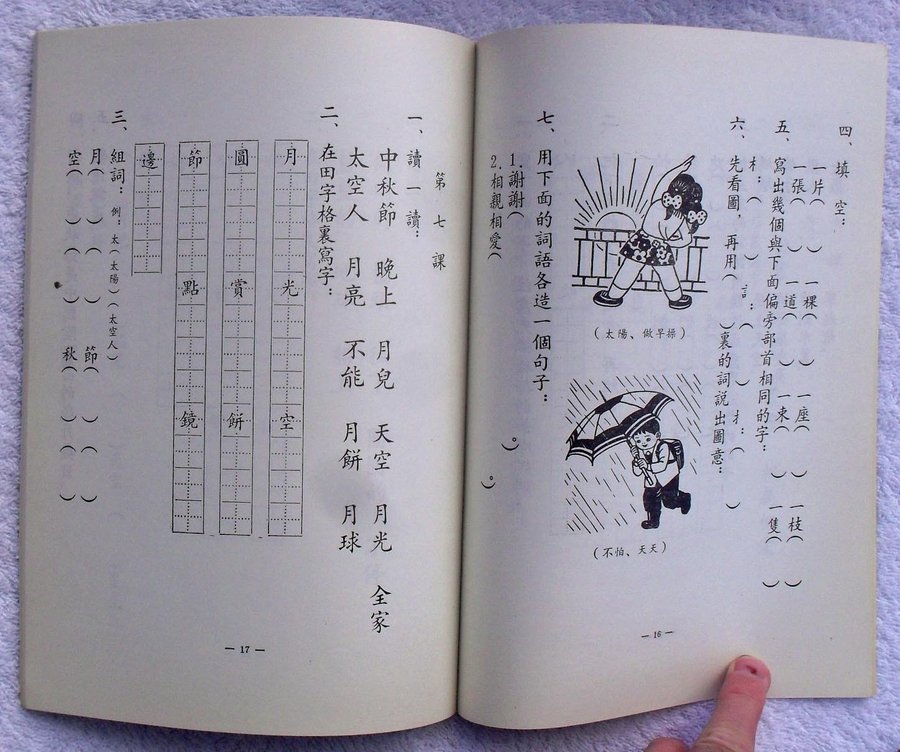 四、填空：
一片（　）一棵（　）一座（　）一枝（　）
一張（　）一道（　）一束（　）一隻（　）
五、寫出幾個與下面偏旁部首相同的字：
木：（　）訁：（　）扌：（　）
六、先看圖，再用（　）裏的詞說出圖意：
（太陽、做早操）
（不怕、天天）
七、用下面的詞語各造一個句子：
1.謝謝（　）。
2.相親相愛（　）。
— 16 —
第七課
一、讀一讀：
中秋節　晚上　月兒　天空　月光　全家
太空人　月亮　不能　月餅　月球
二、在田字格裏寫字：
月　光　空
圓　賞　餅
節　點　鏡
邊
三、組詞：例：太（太陽）（太空人）
月（　）（　）節（　）（　）
空（　）（　）秋（　）（　）
— 17 —